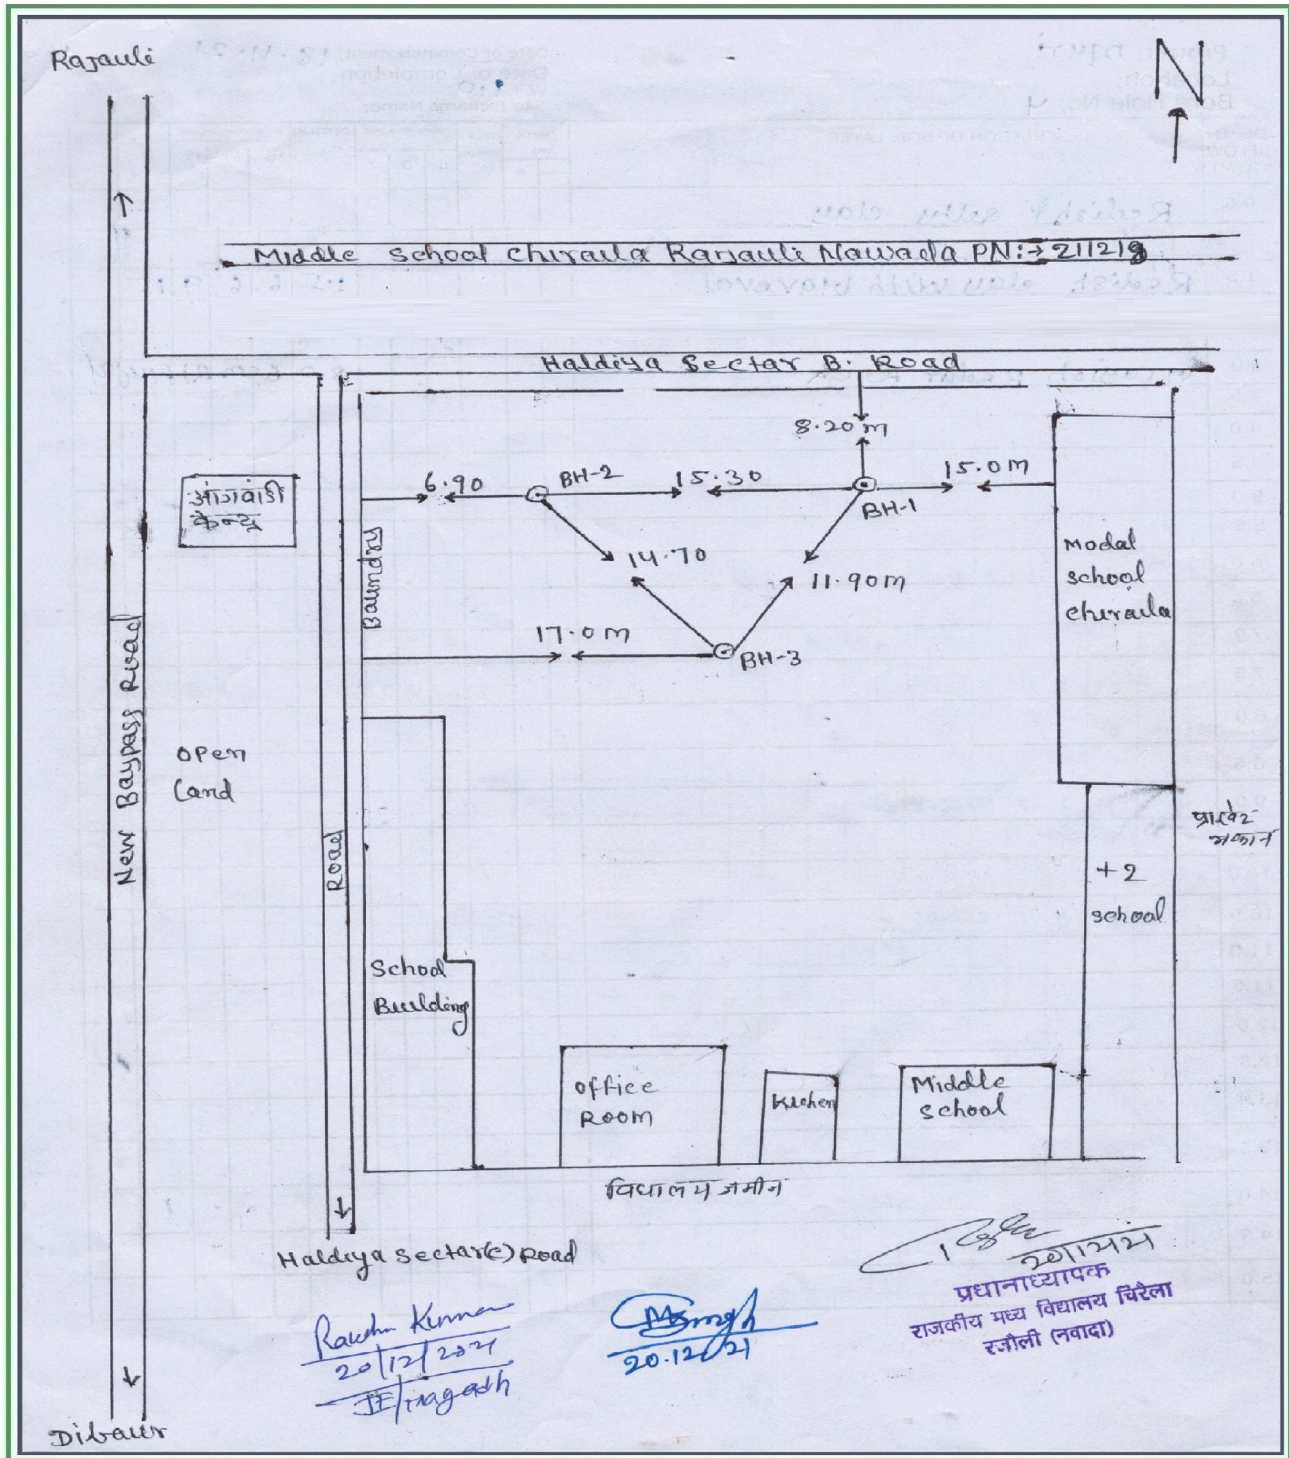 Rajauli
N
Middle School Chiraila Rajauli Nawada PN:→ 211218
Haldiya Sectar B. Road
8.20m
6.90
BH-2
15.30
15.0m
BH-1
आंगवाडी
केन्द्र
14.70
11.90m
Baundry
Modal
school
chiraila
17.0m
BH-3
New Baypass Road
Open
Land
Road
+2
school
School
Building
Office
Room
Kichen
Middle
School
विधालय जमीन
Haldiya Sectar(c) Road
20/12/2021
JE/magadh
20.12.21
प्रधानाध्यापक
राजकीय मध्य विद्यालय चिरैला
रजौली (नवादा)
Dibaur